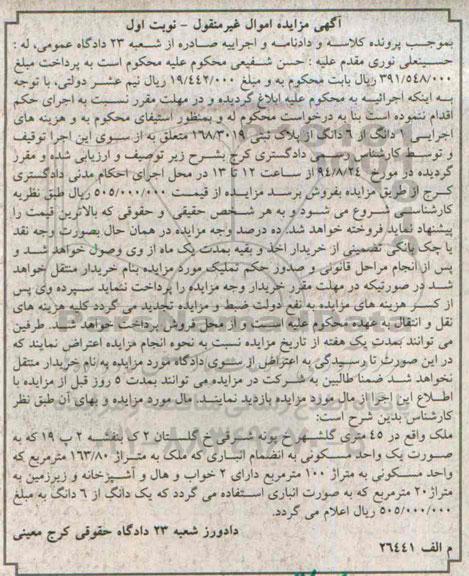 آگهی مزایده اموال غیرمنقول - نوبت اول
بموجب پرونده کلاسه و دادنامه و اجراییه صادره از شعبه ۲۳ دادگاه عمومی، له :
حسینعلی نوری علیه : حسن شفیعی محکوم علیه محکوم است به پرداخت مبلغ
۳۹۱/۵۴۸/۰۰۰ ریال بابت محکوم به و مبلغ ۱۹/۴۴۲/۰۰۰ ریال نیم عشر دولتی، با توجه
به اینکه اجرائیه به محکوم علیه ابلاغ گردیده و در مهلت مقرر نسبت به اجرای حکم
اقدام ننموده است بنا به درخواست محکوم له و بمنظور استیفای محکوم به و هزینه های
اجرایی ۱ دانگ از ۶ دانگ از پلاک ثبتی ۱۶۸/۳۰۱۹ متعلق به از سوی این اجرا توقیف
و توسط کارشناس رسمی دادگستری کرج بشرح زیر توصیف و ارزیابی شده و مقرر
گردیده در مورخ ۹۴/۸/۲۴ از ساعت ۱۲ تا ۱۳ در محل اجرای احکام مدنی دادگستری
کرج از طریق مزایده بفروش برسد مزایده از قیمت ۵۰۵/۰۰۰/۰۰۰ ریال طبق نظریه
کارشناسی شروع می شود و به هر شخص حقیقی و حقوقی که بالاترین قیمت را
پیشنهاد نماید فروخته خواهد شد. ده درصد وجه مزایده در همان حال بصورت وجه نقد
یا چک بانکی تضمینی از خریدار اخذ و بقیه بمدت یک ماه از وی وصول خواهد شد و
پس از انجام مراحل قانونی و صدور حکم تملیک مورد مزایده بنام خریدار منتقل خواهد
شد در صورتیکه در مهلت مقرر خریدار وجه مزایده را پرداخت ننماید سپرده وی پس
از کسر هزینه های مزایده به نفع دولت ضبط و مزایده تجدید می گردد کلیه هزینه های
نقل و انتقال به عهده محکوم علیه است و از محل فروش پرداخت خواهد شد. طرفین
می توانند بمدت یک هفته از تاریخ مزایده نسبت به نحوه انجام مزایده اعتراض نمایند که
در این صورت تا رسیدگی به اعتراض از سوی دادگاه مورد مزایده به نام خریدار منتقل
نخواهد شد ضمنا طالبین به شرکت در مزایده می توانند بمدت ۵ روز قبل از مزایده با
اطلاع این اجرا از مال مورد مزایده بازدید نمایند. مال مورد مزایده و بهای آن طبق نظر
کارشناس بدین شرح است:
ملک واقع در ۴۵ متری گلشهر خ پونه شرقی خ گلستان ۲ ک بنفشه ۲ پ ۱۹ که به
صورت یک واحد مسکونی به انضمام انباری که ملک به متراژ ۱۶۳/۸۰ مترمربع که
واحد مسکونی به متراژ ۱۰۰ مترمربع دارای ۲ خواب و هال و آشپزخانه و زیرزمین به
متراژ ۲۰ مترمربع که به صورت انباری استفاده می گردد که یک دانگ از ۶ دانگ به مبلغ
۵۰۵/۰۰۰/۰۰۰ ریال اعلام می گردد.
دادورز شعبه ۲۳ دادگاه حقوقی کرج معینی
م الف ۲۶۴۴۱